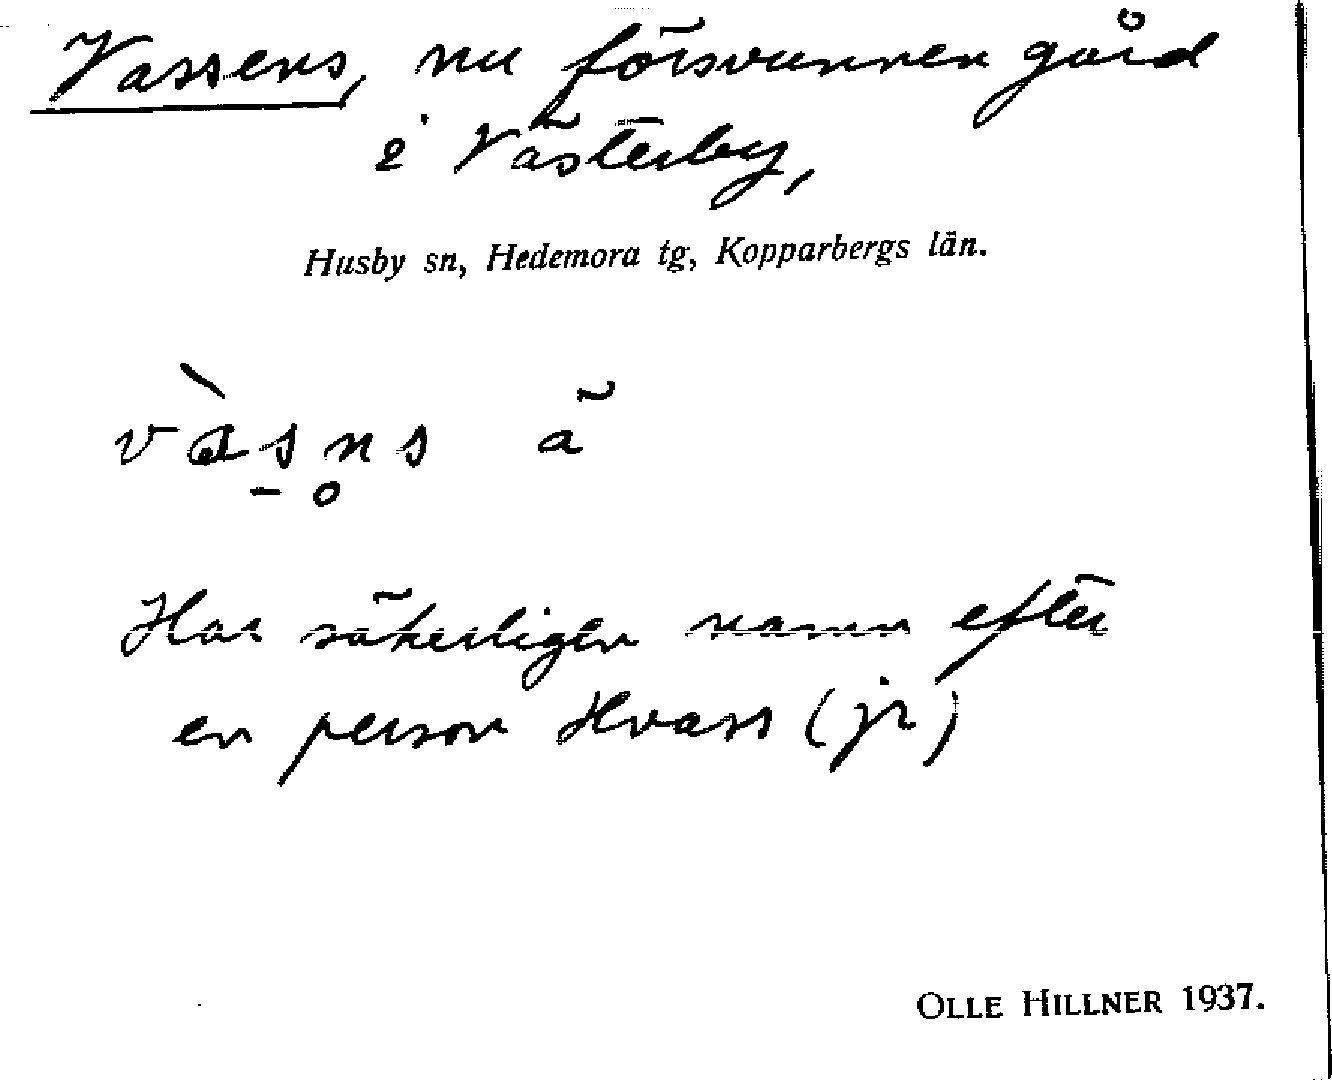 Vassens, nu försvunnen gård
i Västerby,
Husby sn, Hedemora tg, Kopparbergs län.
vàs̱n̥s ä
Har säkerligen namn efter
en person Hvass (jr)
OLLE HILLNER 1937.